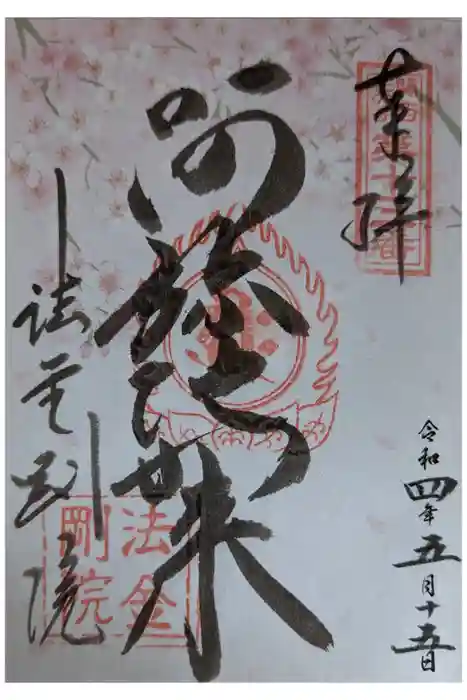 奉拝
阿弥陀如来
法金剛院
法金
剛院
令和四年五月十五日